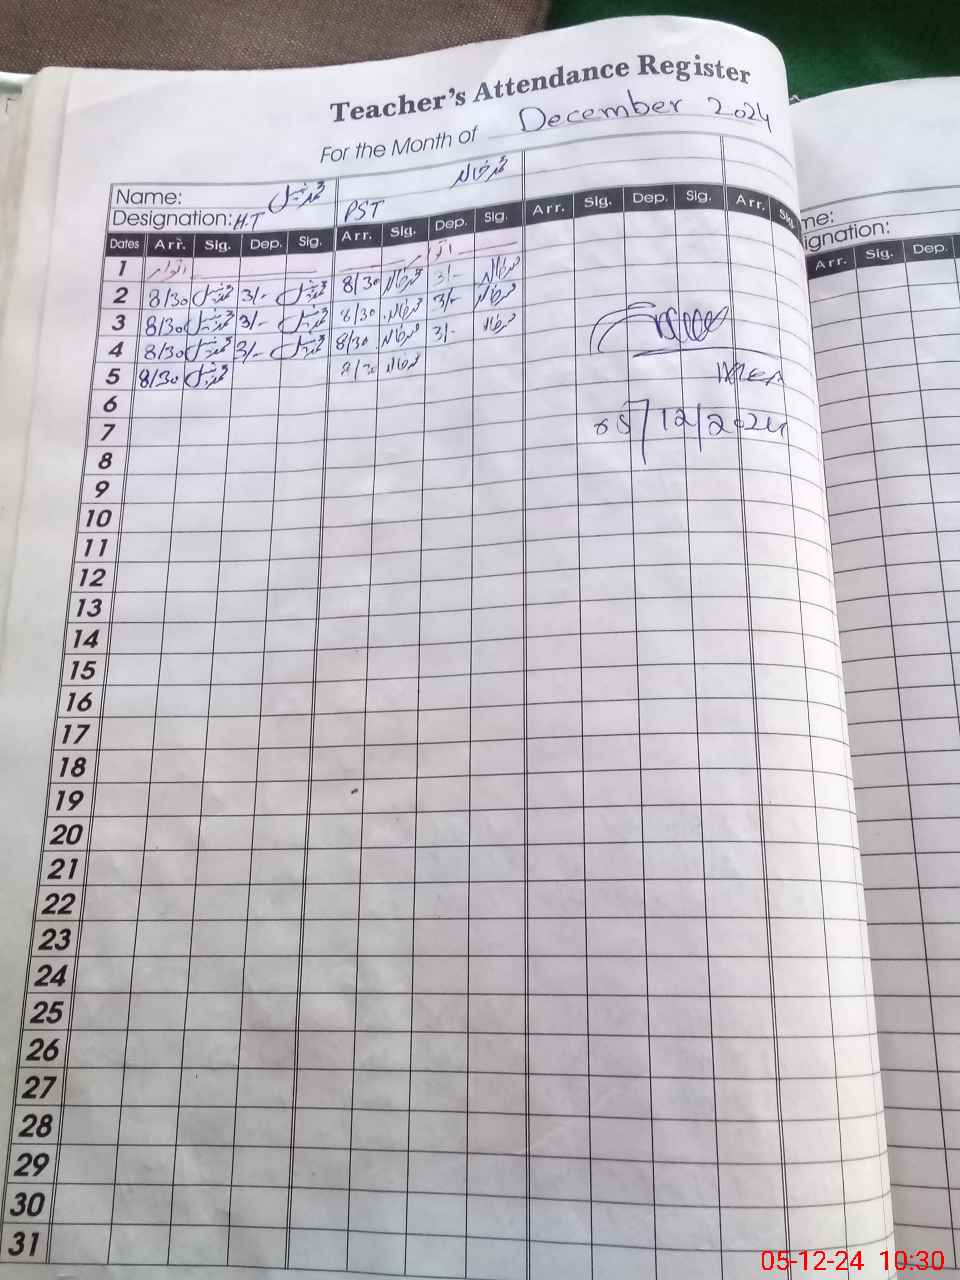 Teacher's Attendance Register
For the Month of December 2024
Name: محمد خالد
Designation: H.T PST
Dates Arr. Sig. Dep. Sig. Arr. Sig. Dep. Sig. Arr. Sig. Dep. Sig. Arr. Sig.
1 اتوار اتوار
2 8/30 3/- 8/30 محمد خالد 3/- محمد خالد
3 8/30 3/- 8/30 محمد خالد 3/- محمد خالد
4 8/30 3/- 8/30 محمد خالد 3/- محمد خالد
5 8/30 8/30 محمد خالد
6
7
05/12/2024
8
9
10
11
12
13
14
15
16
17
18
19
20
21
22
23
24
25
26
27
28
29
30
31
me:
ignation:
Arr. Sig. Dep.
05-12-24 10:30